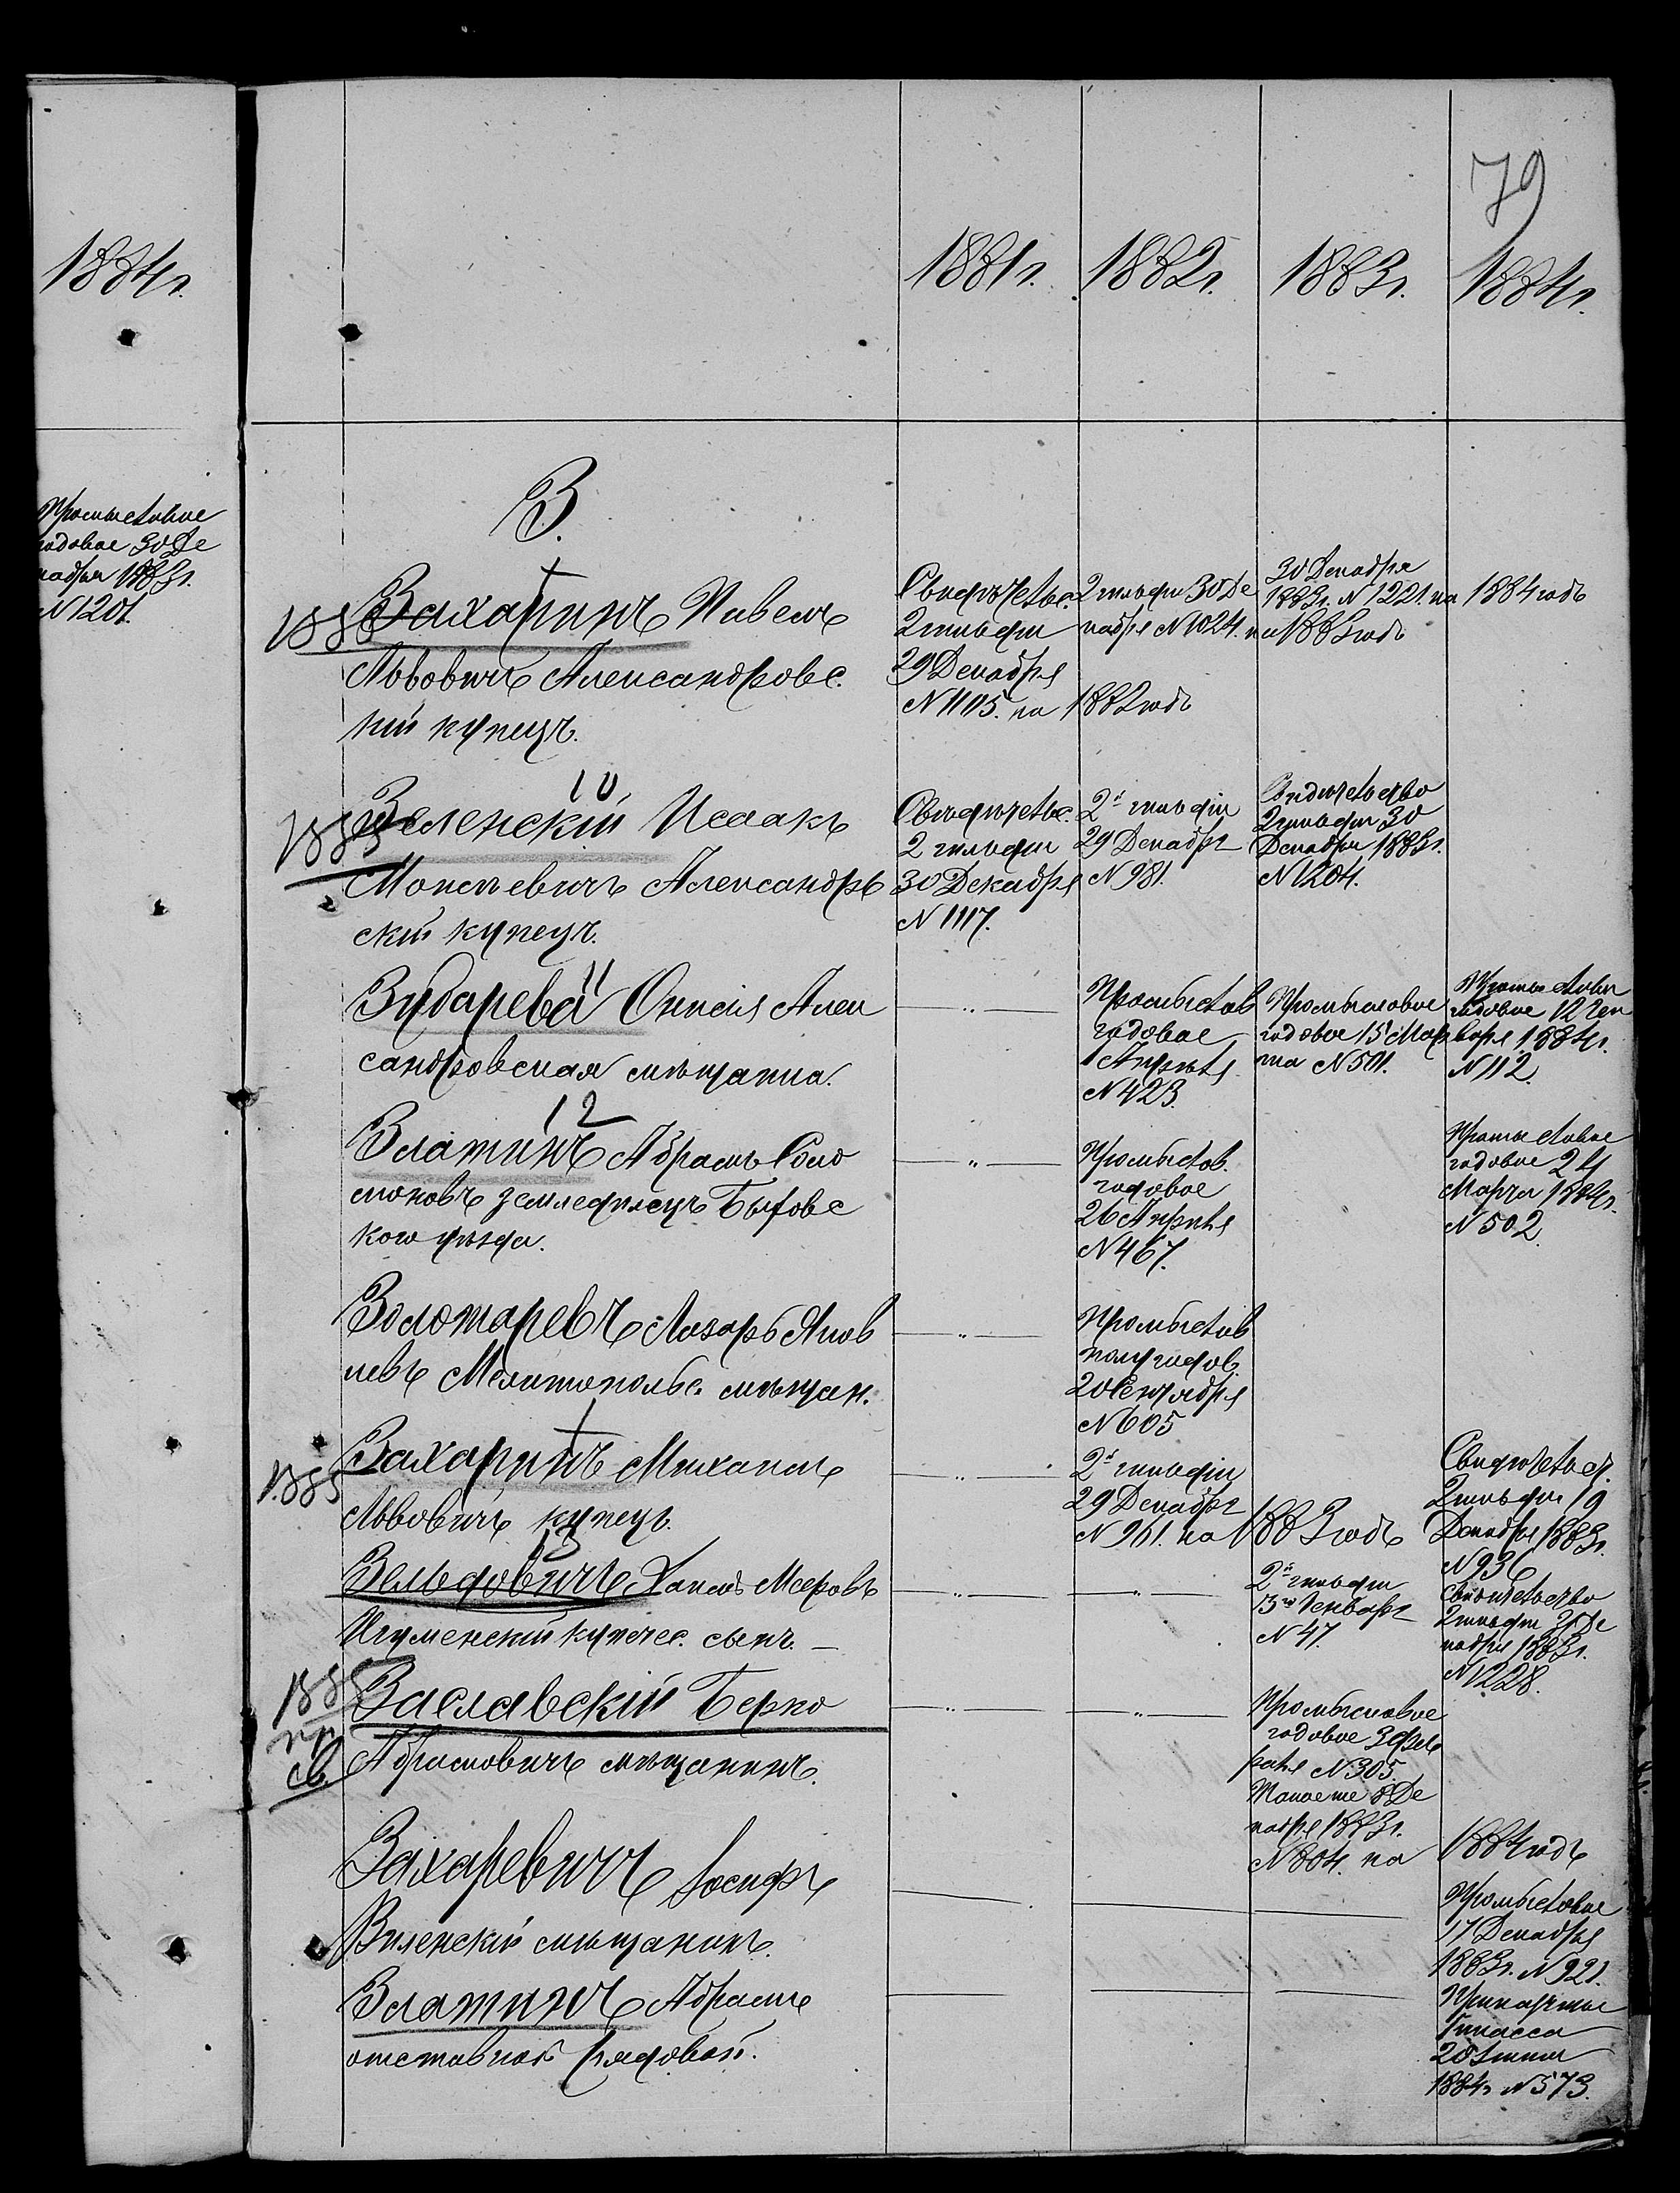 79
1884г.
1881г. 1882г. 1883г. 1884г.
Промысловое
годовое 30 Де
кабря 1883г.
N 1201.
З.
1885
Захаринъ Павелъ
Львовичъ Александровс.
кій купецъ.
2 гильдіи
29 Декабря
N 1105. на 1882 годъ
2 гильдіи 30 Де
кабря N 1024. на 1883 годъ
30 Декабря
1883г. N 1221. на 1884 годъ
10
1885
Зеленскій Исаакъ
Моисеевичъ Александров
скій купецъ.
2 гильдіи
30 Декабря
N 1117.
2й гильдіи
29 Декабр
N 981.
Свидѣтельство
2 гильдіи 30
Декабря 1883г.
N 1204.
11
Зубарева Алек
сандровская мѣщанка.
— " —
Промыслов
годовое
1 Апрѣля
N 423.
Промысловое
годовое 15 Мар
та N 501.
годовое 12 Ген
варя 1884г.
N 112.
12
Златинъ Абрамъ Соло
моновъ земледѣлецъ
кого уѣзда.
— " —
Промыслов.
годовое
26 Апрѣля
N 467.
Промысловое
годовое 24
Марта 1884г.
N 502.
Золотаревъ Лазарь Яков
левъ Мелитопольс. мѣщан.
— " —
Промыслов
полугодов.
20 Сентября
N 605
1885
Захаринъ Михаилъ
Львовичъ купецъ.
— " —
2й гильдіи
29 Декабр
N 961. на 1883 годъ
2 гильдіи 19
Декабря 1883г.
N 936
13
Зельдовичъ Хаимъ Мееровъ
Игуменскій купечес. сынъ. —
— " — — " —
2й гильдіи
13го Генваря
N 47.
Свидѣтельство
2 гильдіи 31 Де
кабря 1883г.
N 1228.
1885
св.
Заславскій Берко
Абрамовичъ мѣщанинъ.
— " — — " —
Промысловое
годовое 3 Фев
раля N 305.
Таковое же 8 Де
кабря 1883г.
N 804. на 1884 годъ
Захаревичъ Іосифъ
Виленскій мѣщанинъ.
Промысловое
17 Декабря
1883г. N 921.
Златинъ Абрамъ
отставной рядовой.
1884г N 573.